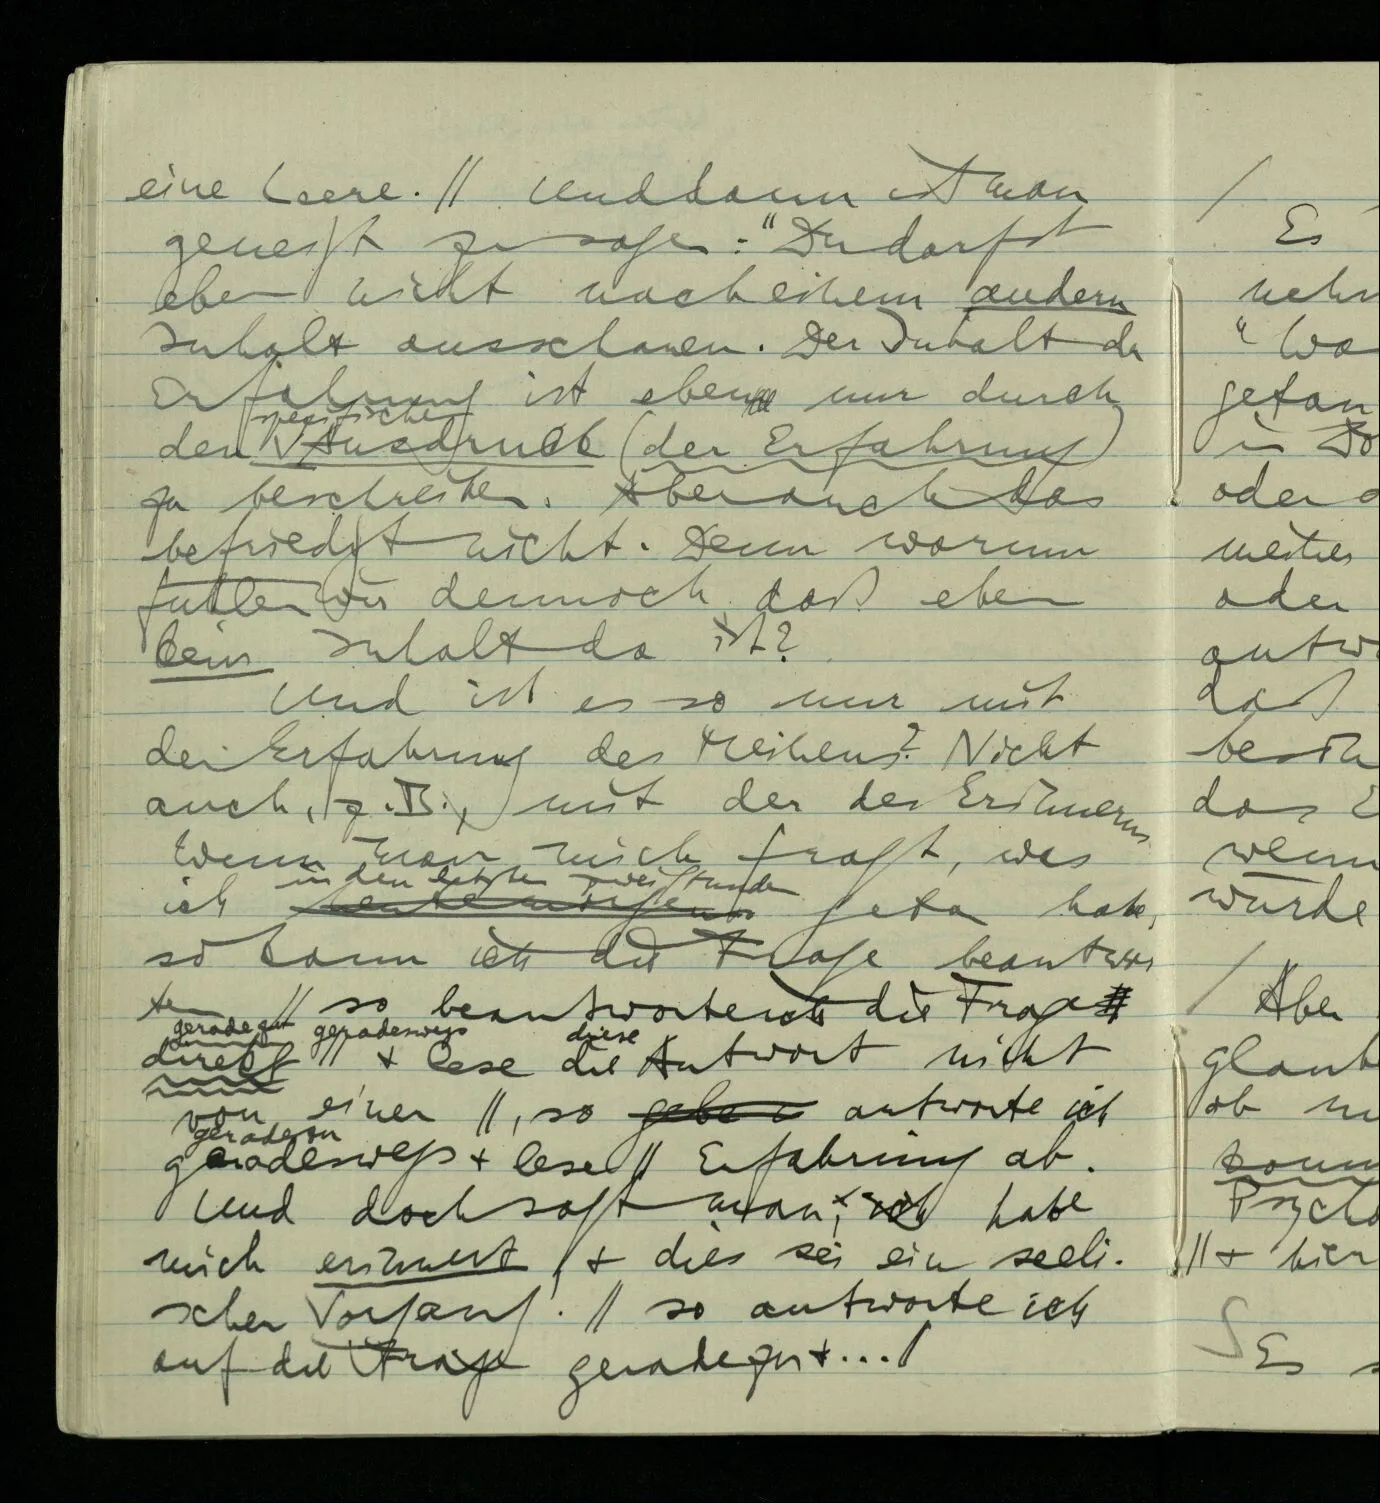 eine Leere. // Und dann ist man
geneigt zu sagen: "Du darfst
eben nicht nach einem andern
Inhalt ausschauen. Der Inhalt der
Erfahrung ist eben nur durch
spezifischen
den Ausdruck (der Erfahrung)
zu beschreiben. Aber auch das
befriedigt nicht. Denn warum
fühlen wir dennoch daß eben
kein Inhalt da ist?
Und ist es so nur mit
der Erfahrung des Meinens? Nicht
auch, z.B., mit der des Erinnerns
Wenn man mich fragt, was
in den letzten zwei Stunden
ich heute morgens getan habe,
so kann ich die Frage beantwor
ten // so beantworte ich die Frage
geradezu geradeswegs diese
direkt // + lese die Antwort nicht
von einer //, so gebe antworte ich
geradeswegs + lese // Erfahrung ab.
Und doch sagt man, ich habe
mich erinnert, + dies sei ein seeli-
scher Vorgang. // so antworte ich
auf die Frage geradezu + ... /
/
Es
"Wa
oder
oder
daß
das
würde
/ Aber
ob
// + hier
Es